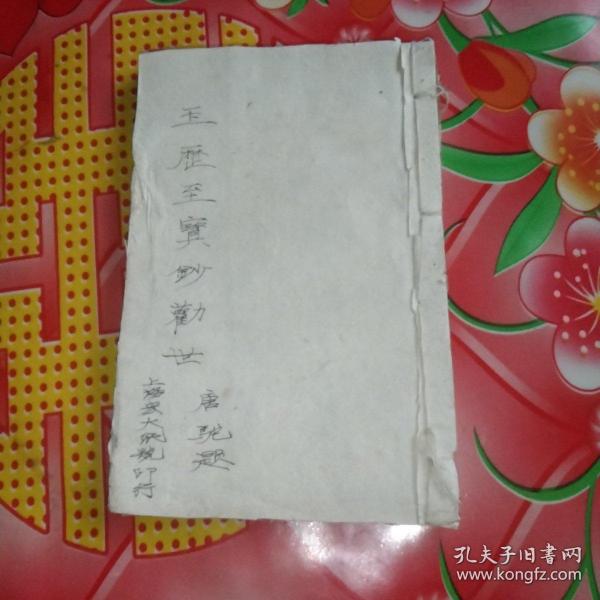 玉歷至寶鈔勸世
唐駝題
上海宏大號印行
孔夫子旧書网
www.kongfz.com